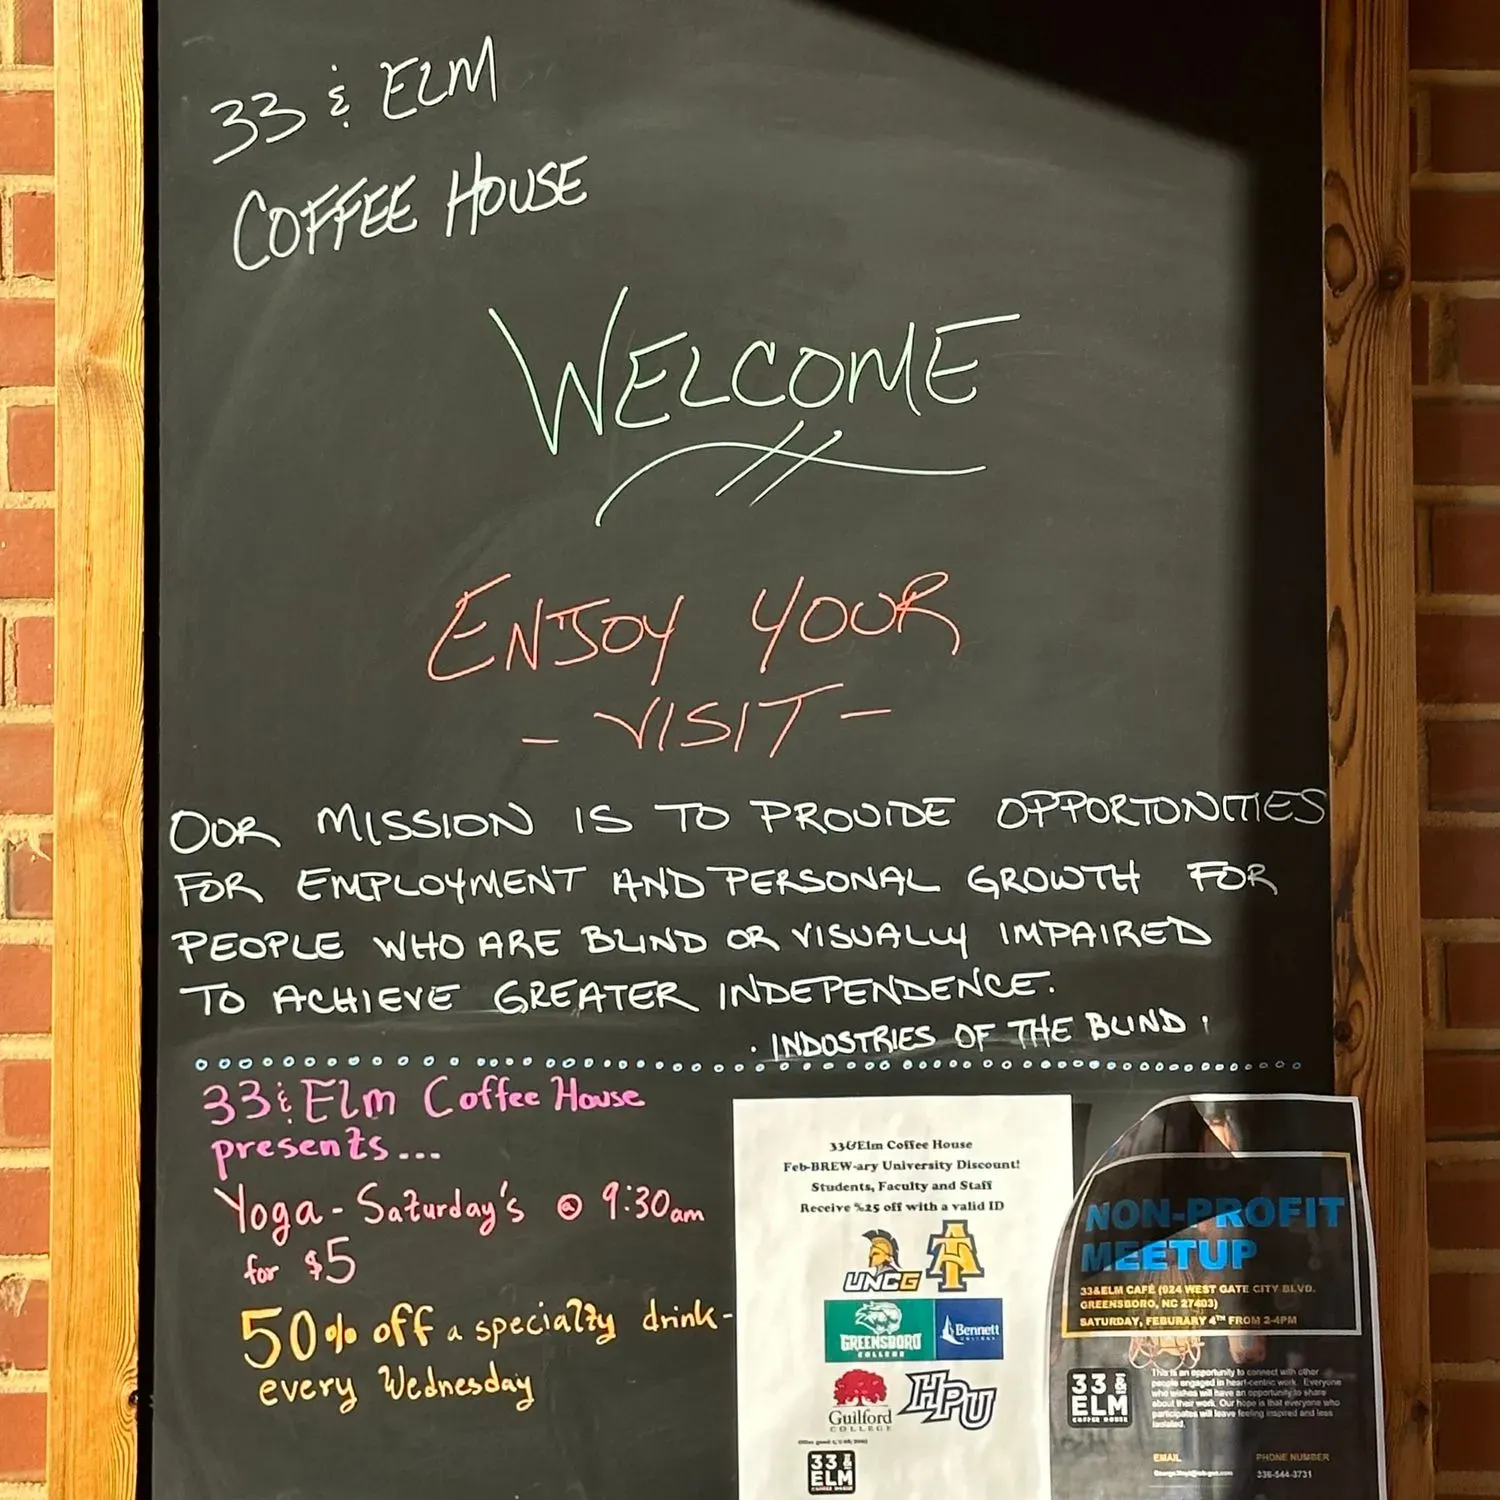 33 & ELM
COFFEE HOUSE
WELCOME
ENJOY YOUR
- VISIT -
OUR MISSION IS TO PROVIDE OPPORTONITIES
FOR EMPLOYMENT AND PERSONAL GROWTH FOR
PEOPLE WHO ARE BLIND OR VISUALLY IMPAIRED
TO ACHIEVE GREATER INDEPENDENCE.
. INDOSTRIES OF THE BLIND .
33 & Elm Coffee House
presents...
Yoga - Saturday's @ 9:30am
for $5
50% off a specialty drink -
every Wednesday
33&Elm Coffee House
Feb-BREW-ary University Discount!
Students, Faculty and Staff
Receive %25 off with a valid ID
UNCG
AT
GREENSBORO
COLLEGE
Bennett
COLLEGE
Guilford
COLLEGE
HPU
33 &
ELM
COFFEE HOUSE
NON-PROFIT
MEETUP
33&ELM CAFÉ (924 WEST GATE CITY BLVD.
GREENSBORO, NC 27403)
SATURDAY, FEBURARY 4TH FROM 2-4PM
This is an opportunity to connect with other
people engaged in heart-centric work. Everyone
who wishes will have an opportunity to share
about their work. Our hope is that everyone who
participates will leave feeling inspired and less
isolated.
33 &
ELM
COFFEE HOUSE
EMAIL
PHONE NUMBER
336-544-3731